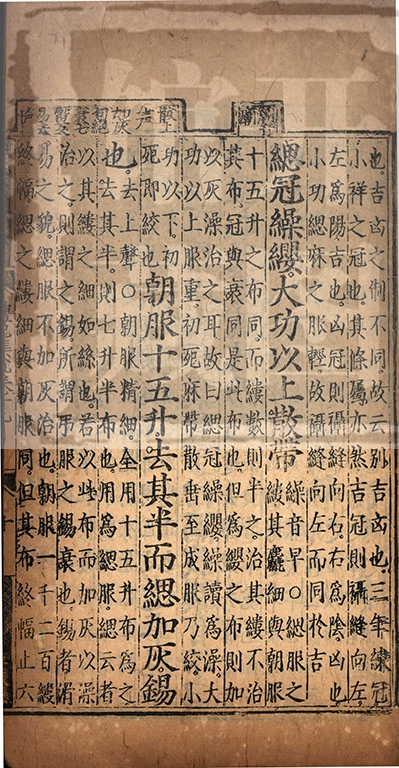 也吉凶之制不同故云別吉凶也三年練冠
小祥之冠也其條屬亦然吉冠則攝縫向左
左為陽吉也凶冠則攝縫向右右為陰凶也
小功緦麻之服輕故攝縫向左而同於吉
緦冠繰纓大功以上散帶
繰音早○緦服之
縷其麤細與朝服
十五升之布同而縷數則半之治其縷不治
其布冠與衰同是此布也但為纓之布則加
以灰澡治之耳故曰緦冠繰纓繰讀為澡大
功以上服重初死麻帶散垂至成服乃絞小
功以下初
死即絞也
朝服十五升去其半而緦加灰錫
也
去上聲○朝服精細全用十五升布為之
去其半則七升半布也用為緦服緦云者
以其縷之細如絲也若以此布而加灰以澡
治之則謂之錫所謂弔服之錫衰也錫者滑
易之貌緦服不加灰治也朝服一千二百縷
終幅緦之縷細與朝服同但其布終幅止六
散上
声
加灰